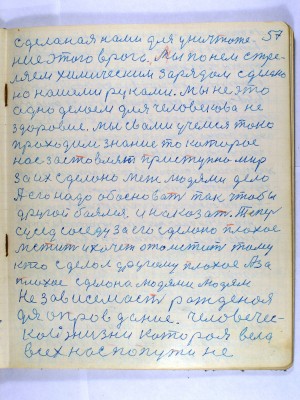 сделаная нами для уничтоже. 57
ние этого врага. Мы по нем стре
ляем химическим зарядом сделано
но нашеми руками. Мы не это
одно делаем для человека не
здоровие. мы с вами учемся токо
проходим знание то которое
нас заставляят приступно мир
за их сделано меж людями дело
А его надо обосноват так чтобы
другой боялся, и наказат. Тепер
сусед соседу за его сделано плохое
мстит и хочет отомстит тому
кто сделол другому плохое А за
плохое сделона людями людям
Не зависемаст рожденая
для оправдание. Человечес-
кой жизни котороя вела
всех нас по пути не